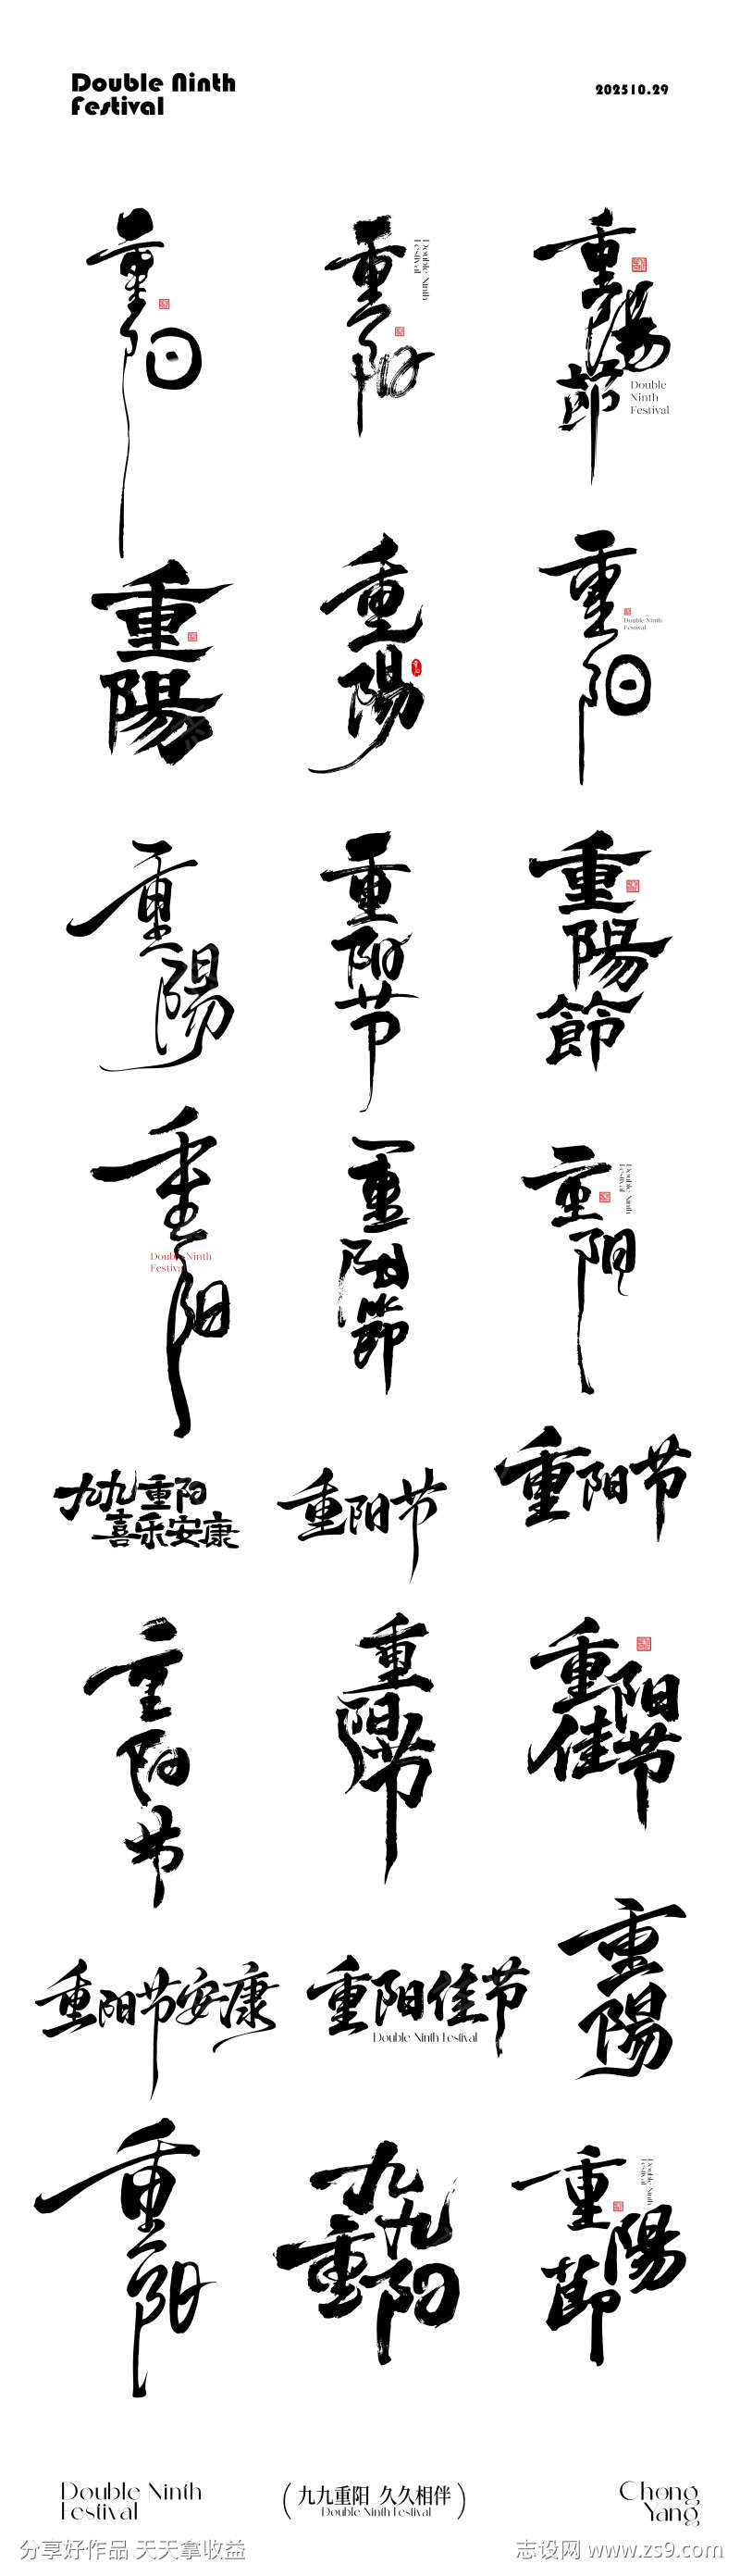 Double Ninth
Festival
202510.29
重阳
重阳
Double Ninth
Festival
重陽節
Double
Ninth
Festival
重陽
重陽
重阳
Double Ninth
Festival
重陽
重阳节
重陽節
重阳
Double Ninth
Festival
重阳節
重阳
Double Ninth
Festival
九九重阳
喜乐安康
重阳节
重阳节
重阳节
重阳节
重阳
佳节
重阳节安康
重阳佳节
Double Ninth Festival
重陽
重阳
九九
重阳
重陽節
Double Ninth
Festival
Double Ninth
Festival
(九九重阳 久久相伴)
Double Ninth Festival
Chong
Yang
分享好作品 天天拿收益
志设网 www.zs9.com